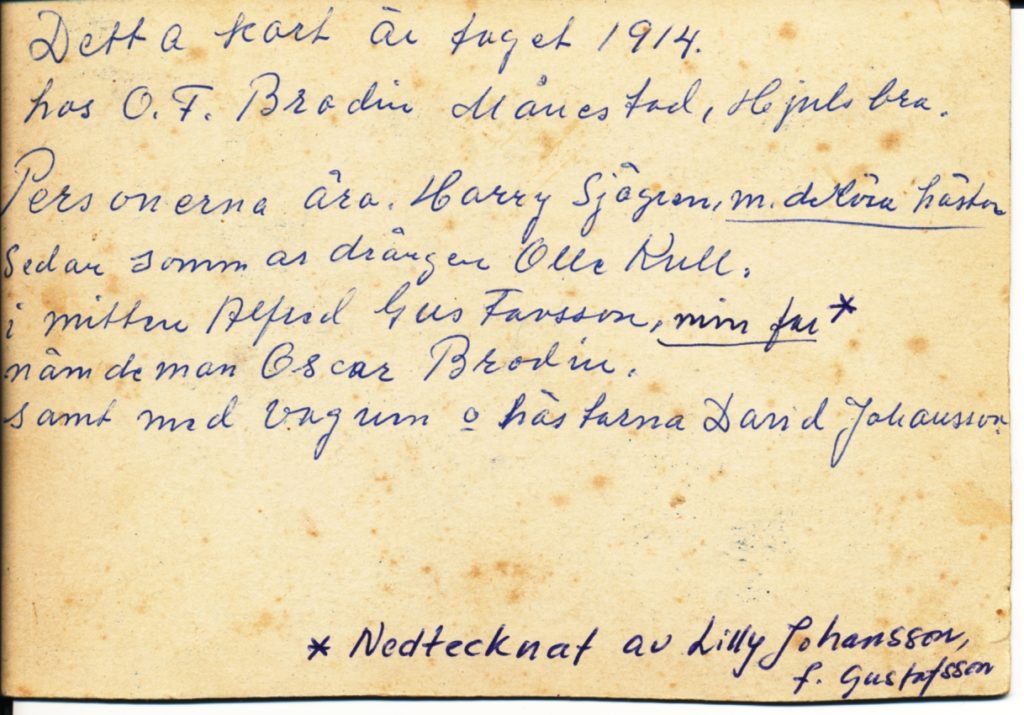 Detta kort är taget 1914.
hos O.F. Brodin Månestad, Hjulsbro.
Personerna äro. Harry Sjögren, m. hästen
sedan sommar drängen Olle Kull.
i mitten Alfred Gustavsson, min far*
nämdeman Oscar Brodin.
samt med vagnen o hästarna David Johansson.
* Nedtecknat av Lilly Johansson,
f. Gustafsson